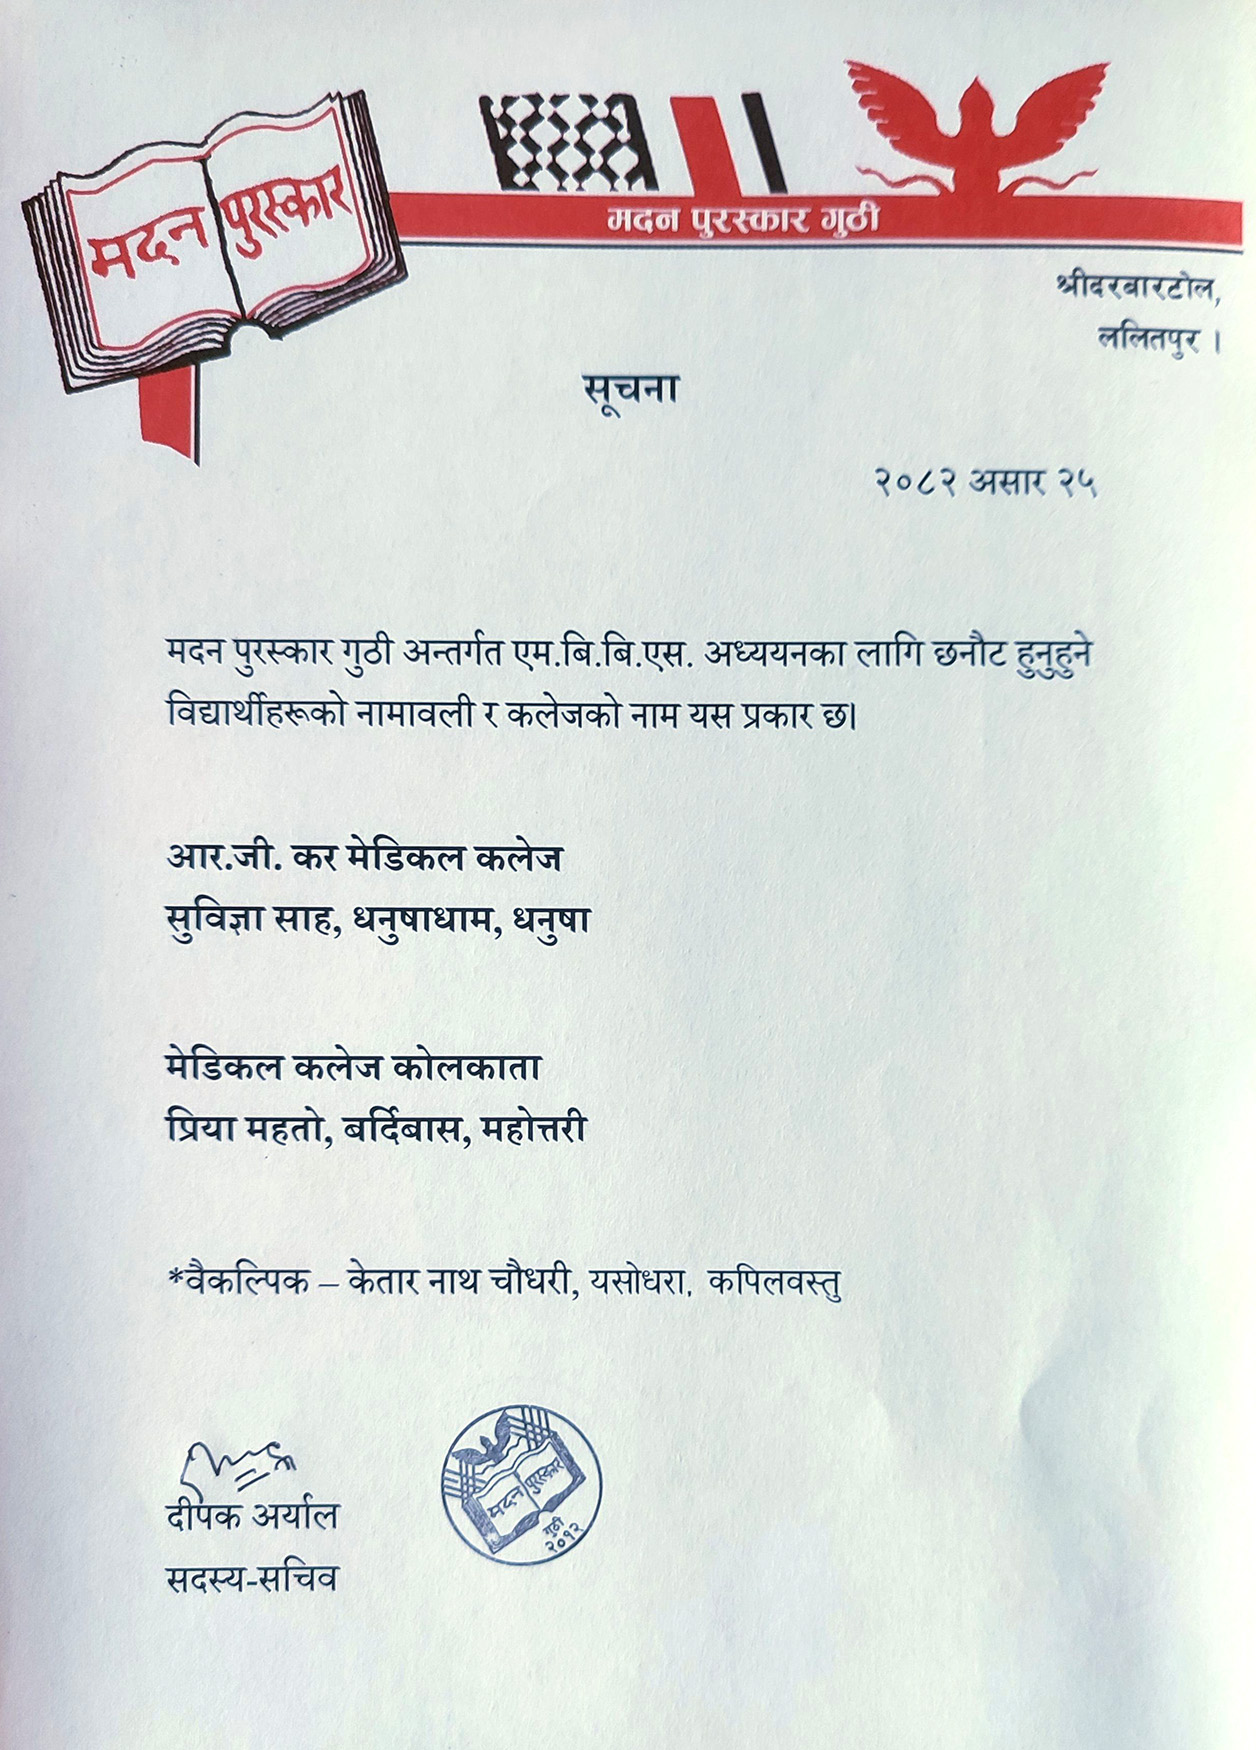 मदन पुरस्कार
मदन पुरस्कार गुठी
श्रीदरबारटोल,
ललितपुर ।
सूचना
२०८२ असार २५
मदन पुरस्कार गुठी अन्तर्गत एम.बि.बि.एस. अध्ययनका लागि छनौट हुनुहुने
विद्यार्थीहरूको नामावली र कलेजको नाम यस प्रकार छ।
आर.जी. कर मेडिकल कलेज
सुविज्ञा साह, धनुषाधाम, धनुषा
मेडिकल कलेज कोलकाता
प्रिया महतो, बर्दिबास, महोत्तरी
*वैकल्पिक – केतार नाथ चौधरी, यसोधरा, कपिलवस्तु
दीपक अर्याल
सदस्य-सचिव
मदन पुरस्कार
गुठी
२०१२